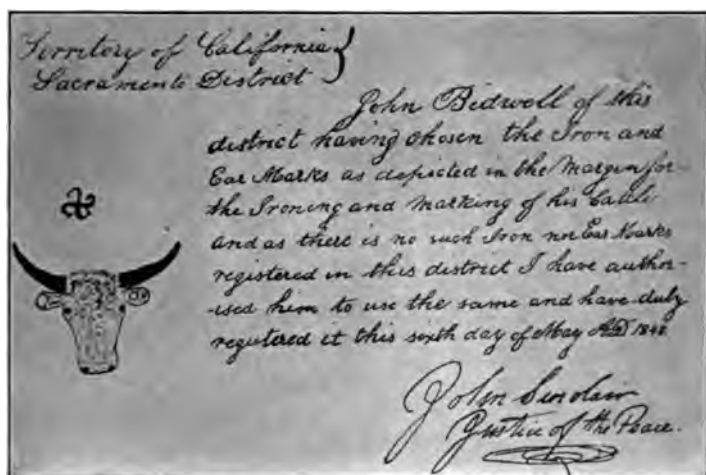 Territory of California }
Sacramento District
John Bidwell of this
district having chosen the Iron and
Ear Marks as depicted in the Margin for
the Ironing and Marking of his Cattle
and as there is no such Iron nor Ear Marks
registered in this district I have author-
-ised him to use the same and have duly
registered it this sixth day of May AD 184
John Sinclair
Justice of the Peace.